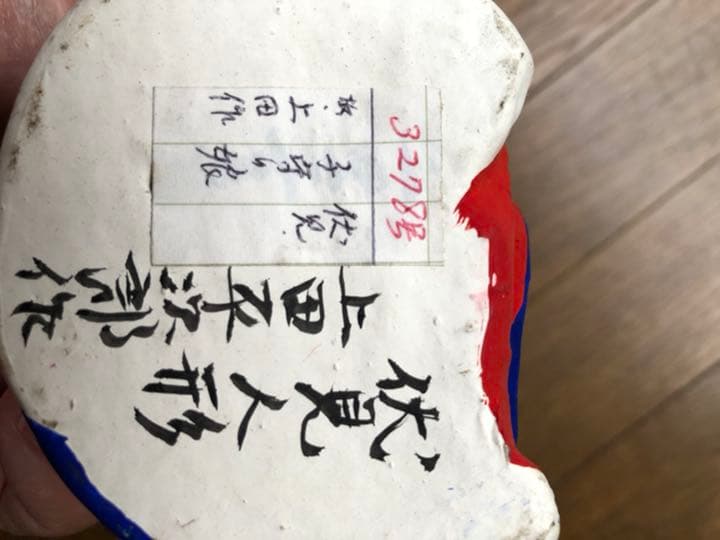 伏見人形
上田平次郎作
3278号
伏見
子守娘
故.上田作